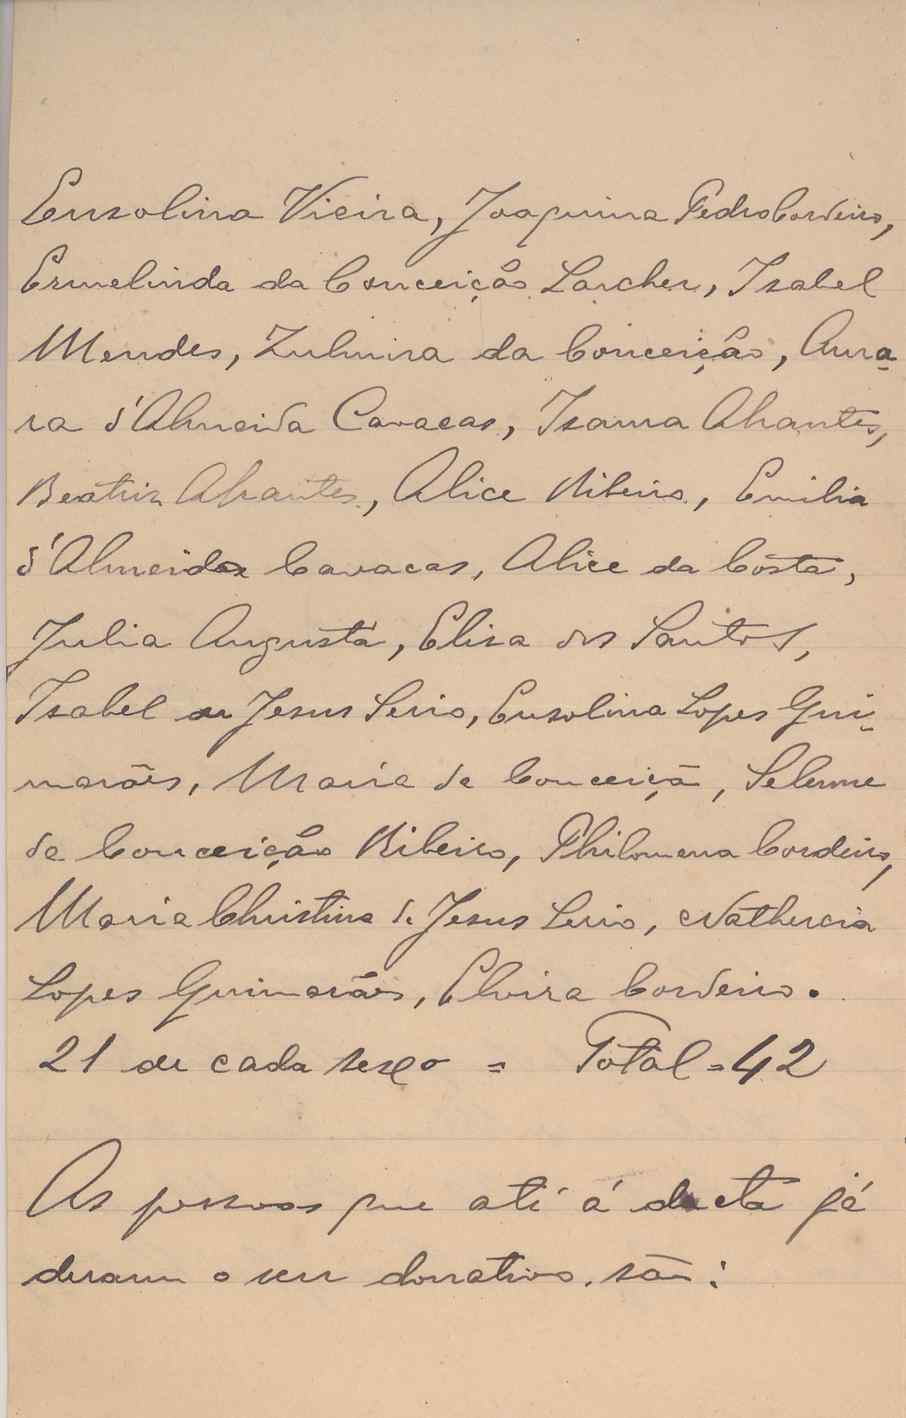 Eusolina Vieira, Joaquina Pedro Cordeiro,
Ermelinda da Conceição Larcher, Isabel
Mendes, Zulmira da Conceição, Auro-
ra d'Almeida Cavacas, Isaura Abrantes,
Beatriz Abrantes, Alice Ribeiro, Emilia
d'Almeida Cavacas, Alice da Costa,
Julia Augusta, Elisa dos Santos,
Isabel de Jesus Serio, Eusolina Lopes Gui-
marães, Maria da Conceiçã,
da Conceição Ribeiro, Philomena Cordeiro,
Maria Christina de Jesus Serio, Nathercia
Lopes Guimarães, Elvira Cordeiro.
21 de cada sexo = Total = 42
As pessoas que até á dacta já
deram o seu donativo, são: